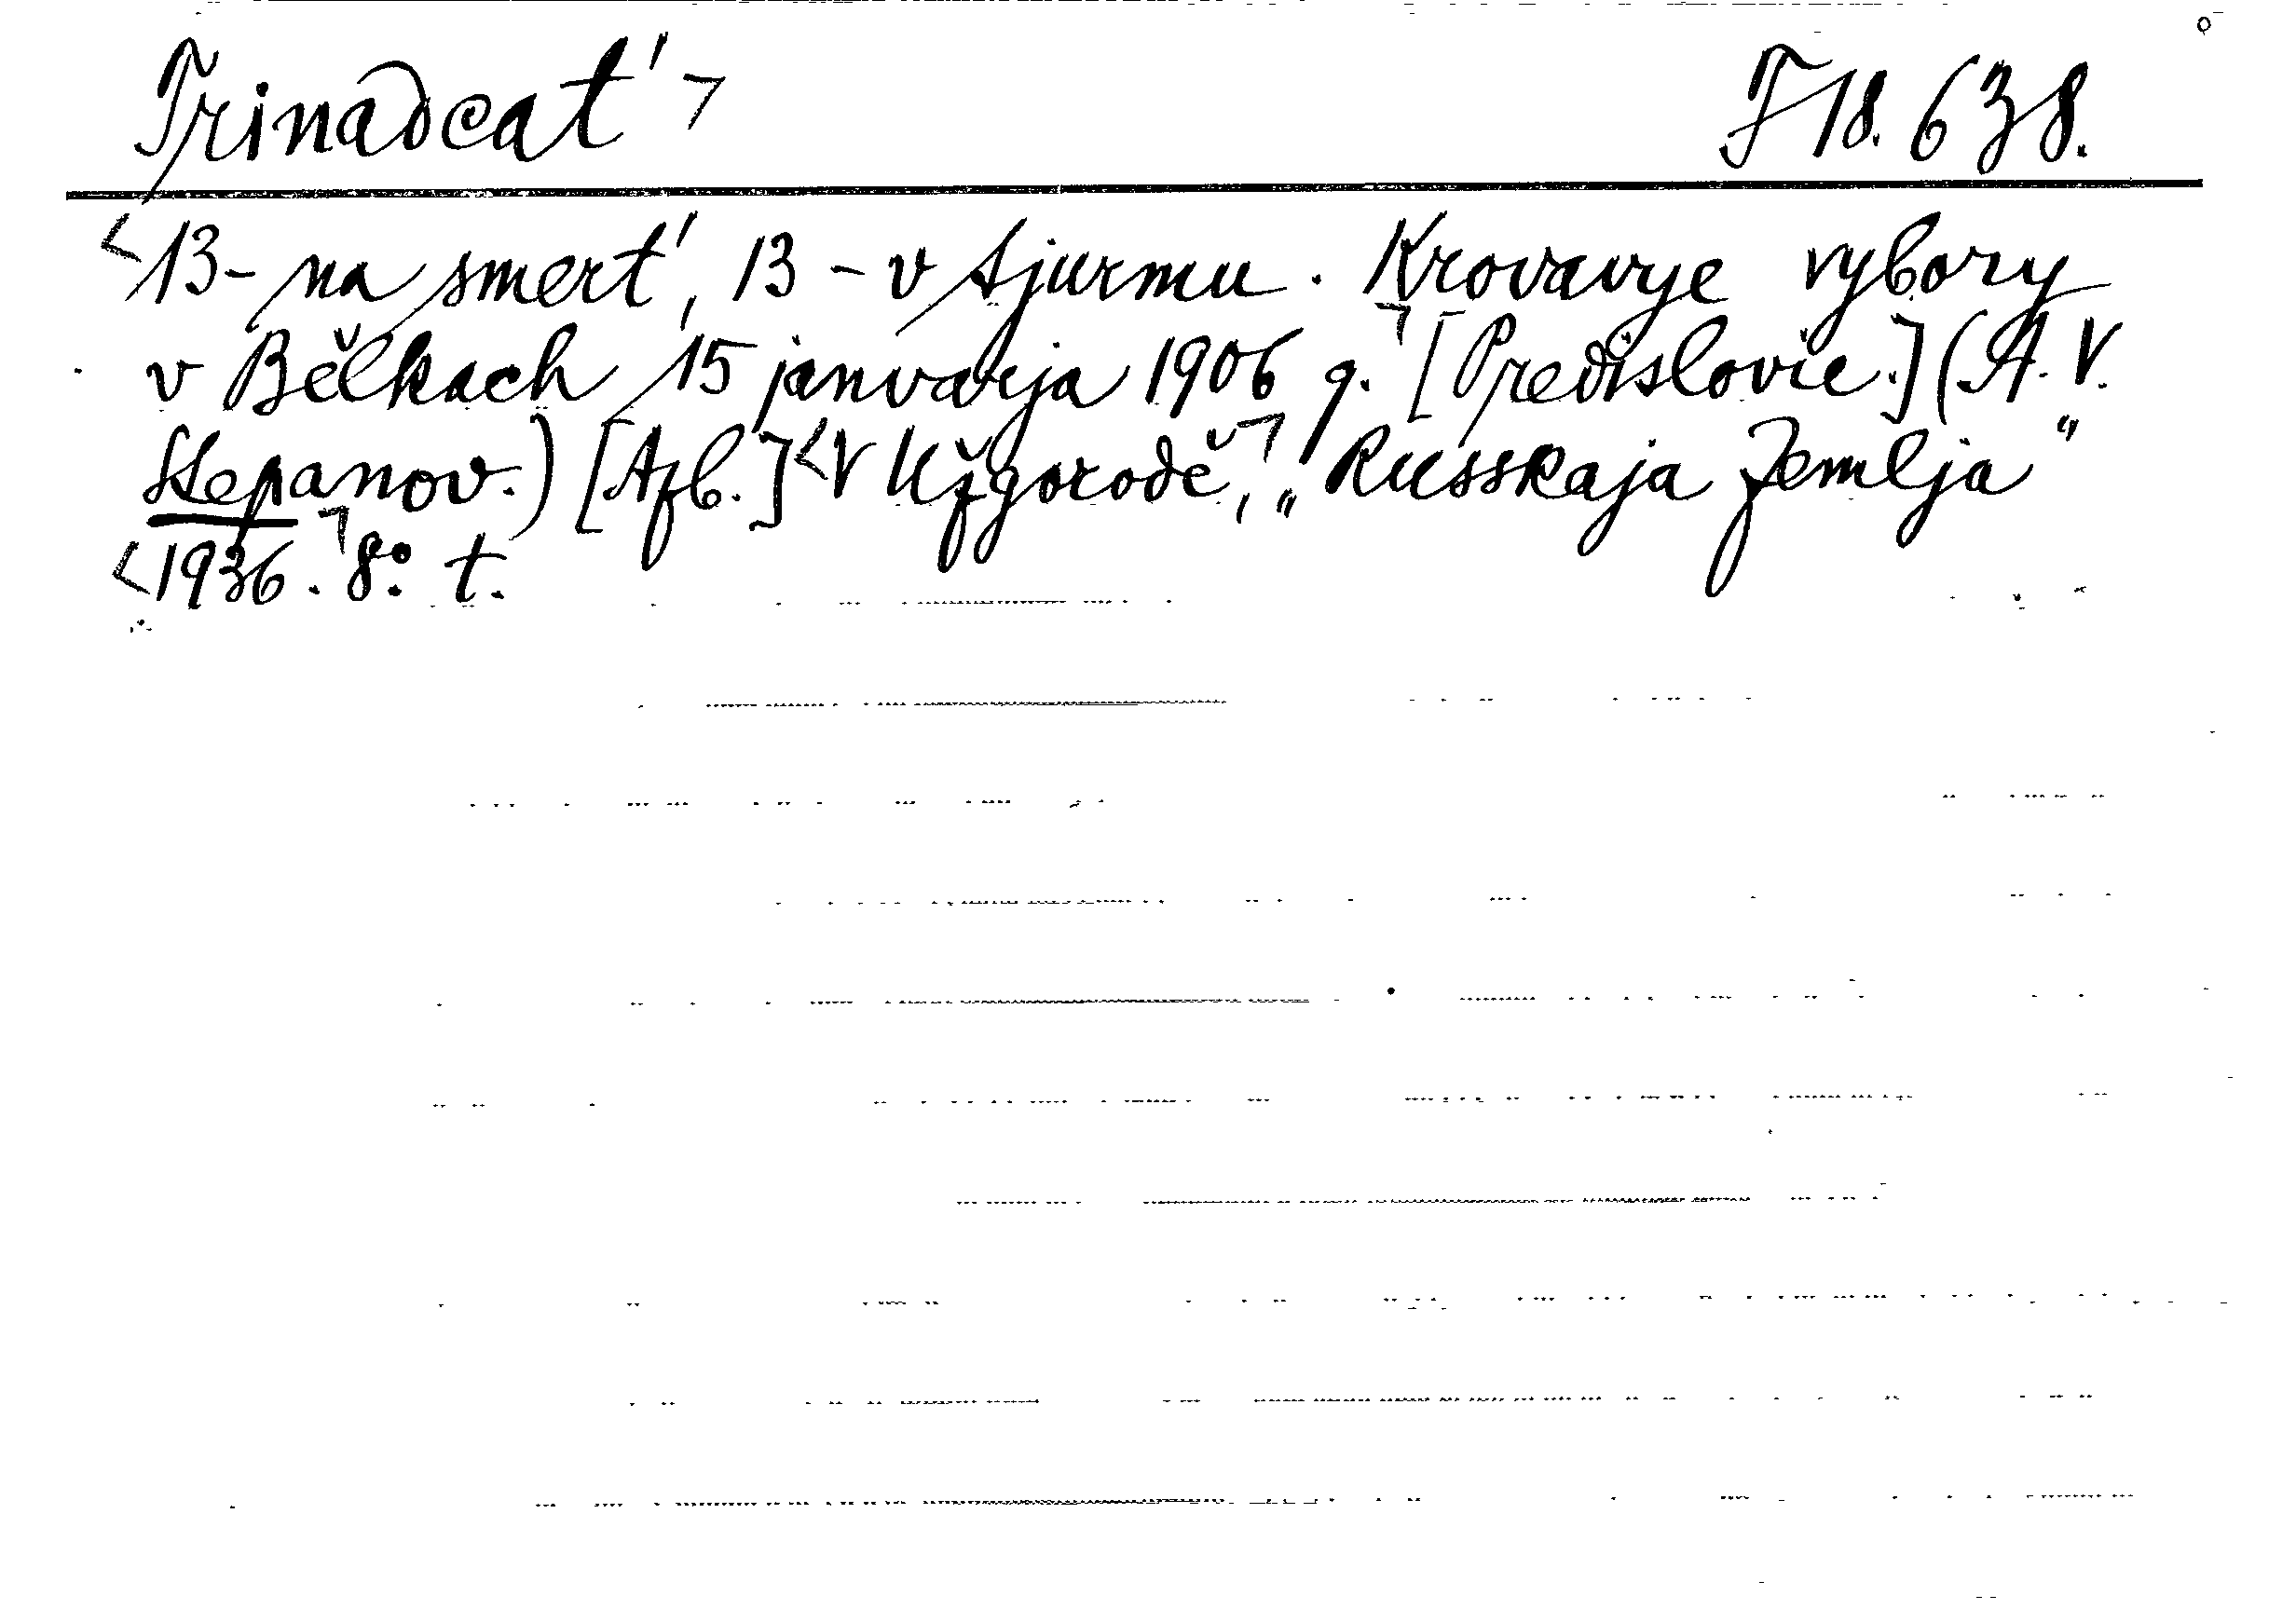 Trinadcat' ¬ F 18.638.
<13 - na smert', 13 - v tjurmu. Krovavye vybory
v Bělkach 15 janvarja 1906 g.¬ [Predislovie.] (A. V.
Stepanov.) [Azb.] <V Užgorodě,¬ „Russkaja Zemlja"
<1936.¬ 8°. t.